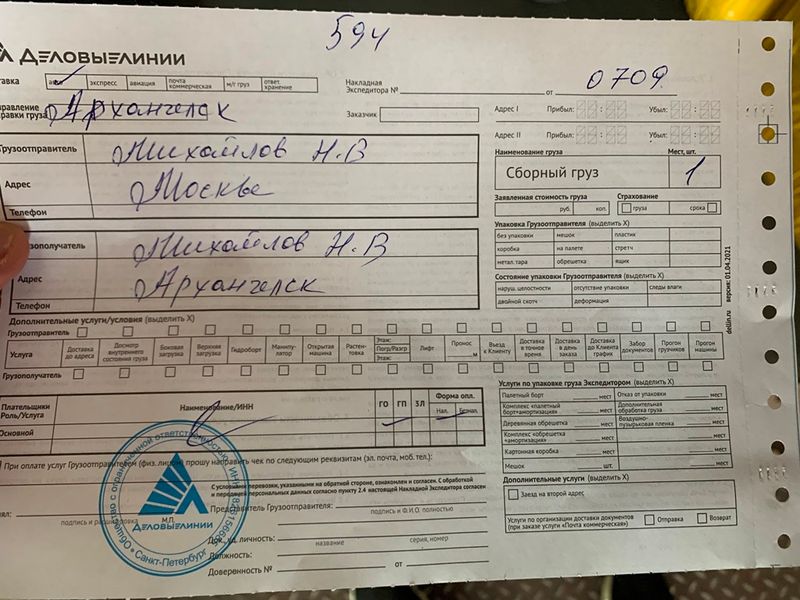 594
ДЕЛОВЫЕ ЛИНИИ
авто экспресс авиация почта коммерческая м/г груз ответ. хранение
Накладная Экспедитора № от 0709
Архангельск
Заказчик
Адрес I Прибыл: : Убыл: :
Адрес II Прибыл: : Убыл: :
Грузоотправитель Михайлов Н.В
Адрес Москве
Телефон
Наименование груза Мест, шт.
Сборный груз 1
Заявленная стоимость груза Страхование
руб. коп. груза срока
Грузополучатель Михайлов Н.В
Адрес Архангельск
Телефон
Упаковка Грузоотправителя (выделить X)
без упаковки мешок пластик
коробка на палете стретч
метал. тара обрешетка ящик
Состояние упаковки Грузоотправителя (выделить X)
наруш. целостности отсутствие упаковки следы влаги
двойной скотч деформация
dellin.ru версия: 01.04.2021
Дополнительные услуги/условия (выделить X)
Грузоотправитель
Услуга Доставка до адреса Досмотр внутреннего состояния груза Боковая загрузка Верхняя загрузка Гидроборт Манипу-лятор Открытая машина Растен-товка Этаж: Погр/Разгр Этаж: Лифт Пронос м Выезд к Клиенту Доставка в точное время Доставка в день заказа Доставка до Клиента график Забор документов Прогон грузчиков Прогон машины
Грузополучатель
Плательщики Роль/Услуга Наименование/ИНН ГО ГП 3Л Форма опл. Нал. Безнал.
Основной
Услуги по упаковке груза Экспедитором (выделить X)
Палетный борт мест Отказ от упаковки мест
Комплекс «палетный борт+амортизация» мест Дополнительная обработка груза мест
Деревянная обрешетка мест Воздушно-пузырьковая пленка мест
Комплекс «обрешетка +амортизация» мест
Картонная коробка мест мест
Мешок шт. мест
При оплате услуг Грузоотправителем (физ. лицом) прошу направить чек по следующим реквизитам (эл. почта, моб. тел.):
С условиями перевозки, указанными на обратной стороне, ознакомлен и согласен. С обработкой
и передачей персональных данных согласно пункту 2.4 настоящей Накладной Экспедитора согласен
Представитель Грузоотправителя:
подпись и Ф.И.О. полностью
Дополнительные услуги (выделить X)
Заезд на второй адрес
Услуги по организации доставки документов (при заказе услуги «Почта коммерческая») Отправка Возврат
подпись и расшифровка
М.П.
Общество с ограниченной ответственностью
ДЕЛОВЫЕ ЛИНИИ
Санкт-Петербург
Док. уд. личность:
название серия, номер
Должность:
Доверенность № от